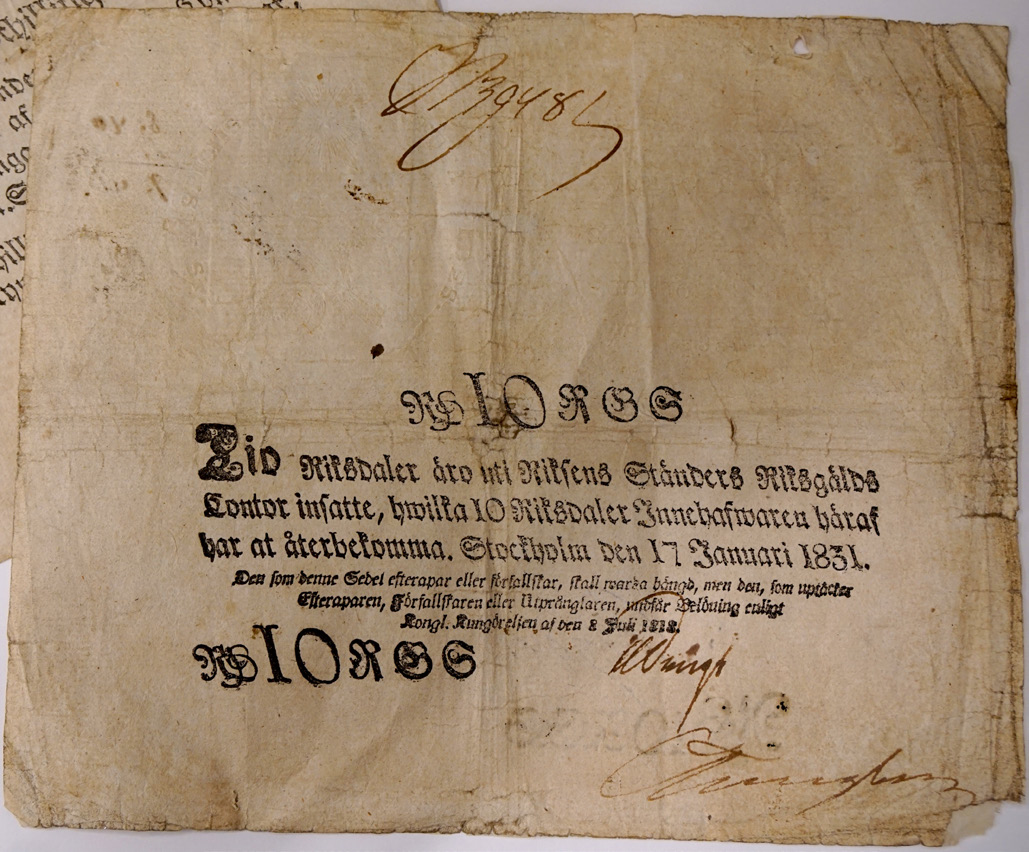 10 RGS
Tio Riksdaler äro uti Riksens Ständers Riksgälds
Contor insatte, hwilka 10 Riksdaler Innehafwaren häraf
har at återbekomma. Stockholm den 17 Januari 1831.
Den som denne Sedel efterapar eller förfallskar, skall warda hängd, men den, som uptäcker
Efteraparen, Förfallskaren eller Utprånglaren, undfår Belöning enligt
Kongl. Kungörelsen af den 8 Juli 1818.
10 RGS